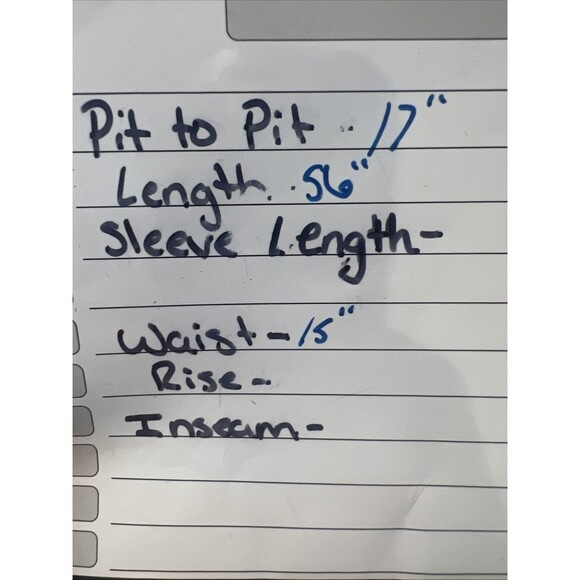 Pit to Pit - 17"
Length - 56"
Sleeve Length -
Waist - 15"
Rise -
Inseam -